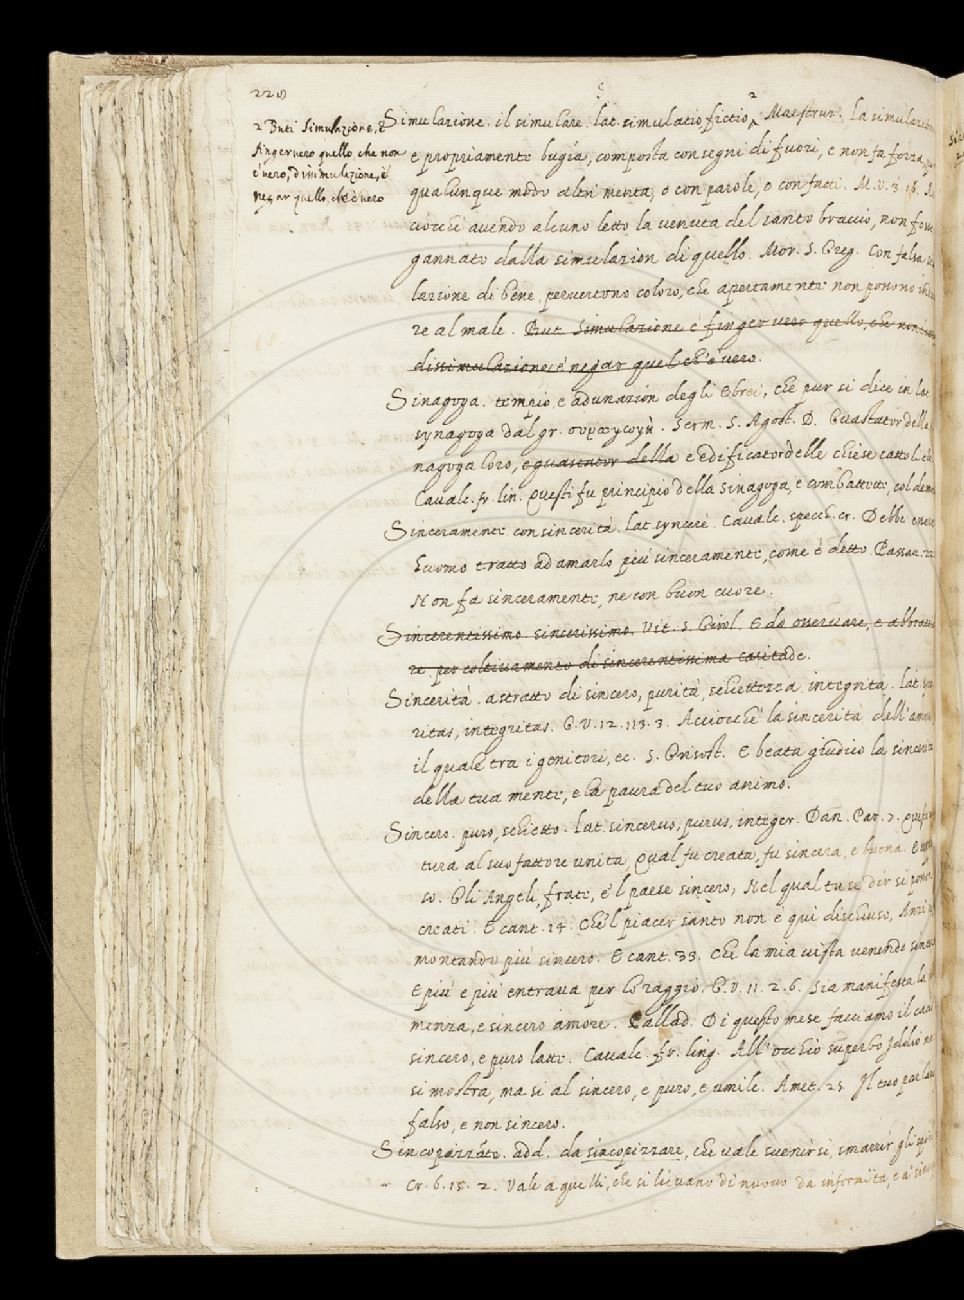 220
2 Buti Simulazione, è
finger vero quello, che non
è vero, dissimulazione, è
negar quello, ch'è vero
Simulazione. il simulare. lat. simulatio, fictio 2 Maestruz. La simulazion
è propriamente bugía, composta con segni di fuori, e non fa forza,
qualunque modo altri menta, o con parole, o con fatti. M. V. 3. 16.
ciocchè avendo alcuno letto la venuta del santo braccio, non fosse
gannato dalla simulazion di quello. Mor. S. Greg. Con falsa
lazione di bene pervertono coloro, che apertamente non possono
re al male. But. Simulazione è finger vero quello, che non
dissimulazione è negar quel ch'è vero.
Sinagoga. tempio, e adunazion degli Ebrei, che pur si dice in lat.
synagoga dal gr. συναγωγὴ. Serm. S. Agost. D. Guastator della
nagoga loro, e guastator della e edificator delle chiese cattol.
Cavalc. fr. lin. Questi fu principio della sinagoga, e combatteo, col
Sinceramente. con sincerità. lat. syncerè. Cavalc. specch. cr. Debbe essere
l'uomo tratto ad amarlo più sinceramente, come è detto. Passav. 22
Non fa sinceramente, ne con buon cuore.
Sincerentissimo. sincerissimo. Vit. S. Girol. E da osservare, e abbraccia
re per coltivamento di sincerentissima caritade.
Sincerità. astratto di sincero, purità, schiettezza, integrità. lat.
ritas, integritas. G. V. 12. 113. 3. Acciocchè la sincerità dell'amo
il quale tra i genitori, ec. S. Grisost. E beata giudico la sincerità
della tua mente, e la paura del tuo animo.
Sincero. puro, schietto. lat. sincerus, purus, integer. Dan. Par. 7.
tura al suo fattore unita, Qual fu creata, fu sincera, e buona. E
so. Gli Angeli, frate, e 'l paese sincero, Nel qual tu se, dir si posson
creati. E cant. 14. Che 'l piacer santo non è qui dischiuso,
montando più sincero. E cant. 33. Che la mia vista venendo sincera
E più e più entrava per lo raggio. G. V. 11. 2. 6. Sia manifesta la
menza, e sincero amore. Pallad. Di questo mese facciamo il cacio
sincero, e puro latte. Cavalc. fr. ling. All'occhio superbo Iddio
si mostra, ma sì al sincero, e puro, e umile. Amet. 25. Il tuo parlare
falso, e non sincero.
Sincopizzáto. add. da sincopizzare, che vale svenirsi, smarrir gli spiriti
Cr. 6. 15. 2. Vale a quelli, che si lievano di nuovo da infermità, e a